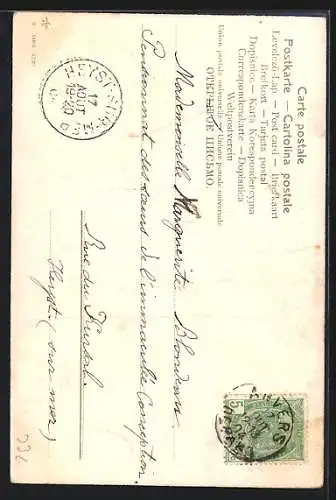 Carte postale
Postkarte — Cartolina postale
Levelező-Lap — Post card — Briefkaart
Brefkort — Tarjeta postal
Dopisnice — Karta Korespondencyjna
Correspondenzkarte — Dopisnica
Weltpostverein
Union postale universelle — Unione postale universale
ОТКРЫТОЕ ПИСЬМО.
Mademoiselle Marguerite Blondeau
Pensionnat des dames de l'immaculée Conception.
Rue du Kursal.
Heyst. (sur mer)
HEYST-SUR-MER
17
AOUT
19-20
ANVERS
5